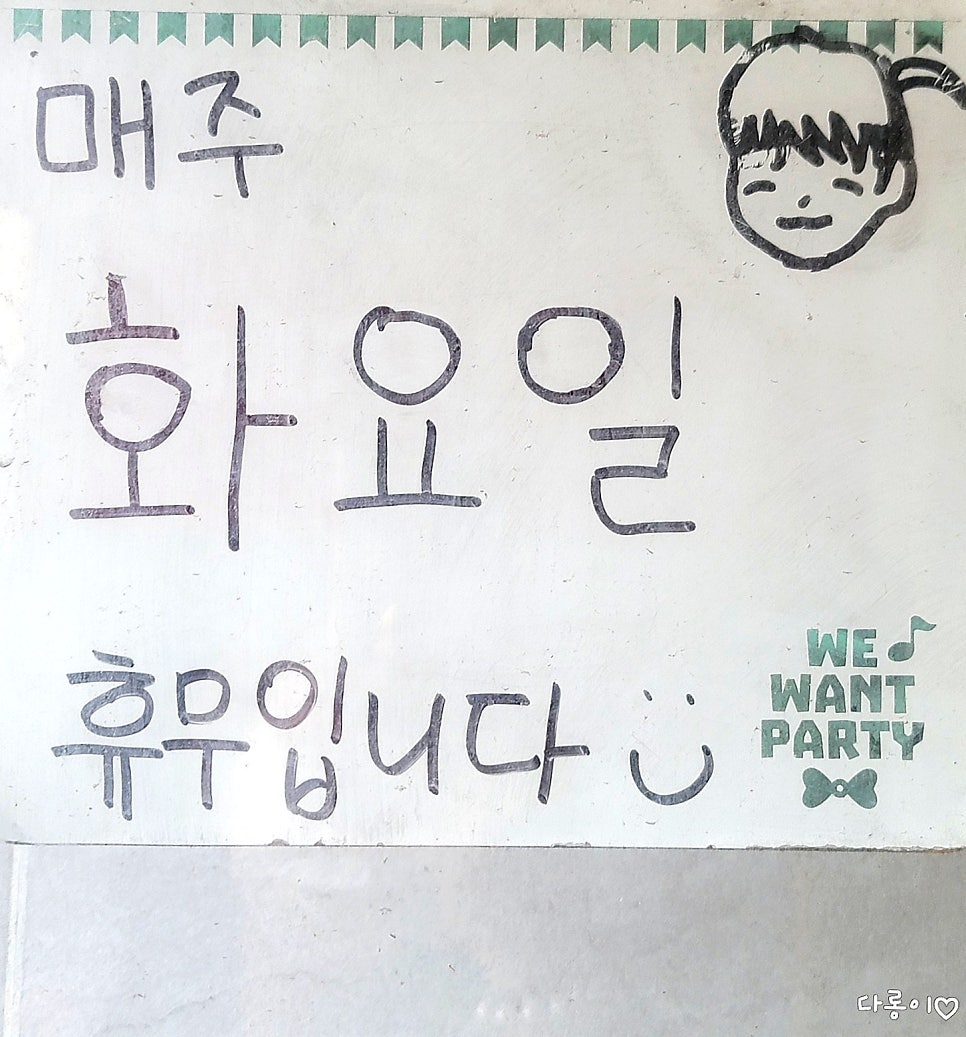 매주
화요일
휴무입니다
WE
WANT
PARTY
다롱이♡